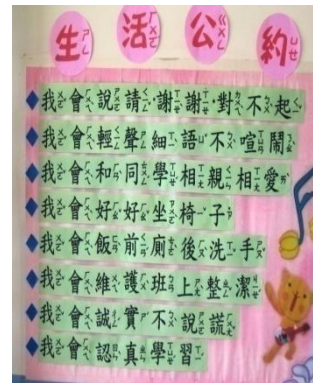 生活公約
我會說請、謝謝、對不起
我會輕聲細語不喧鬧
我會和同學相親相愛
我會好好坐椅子
我會飯前廁後洗手
我會維護班上整潔
我會誠實不說謊
我會認真學習